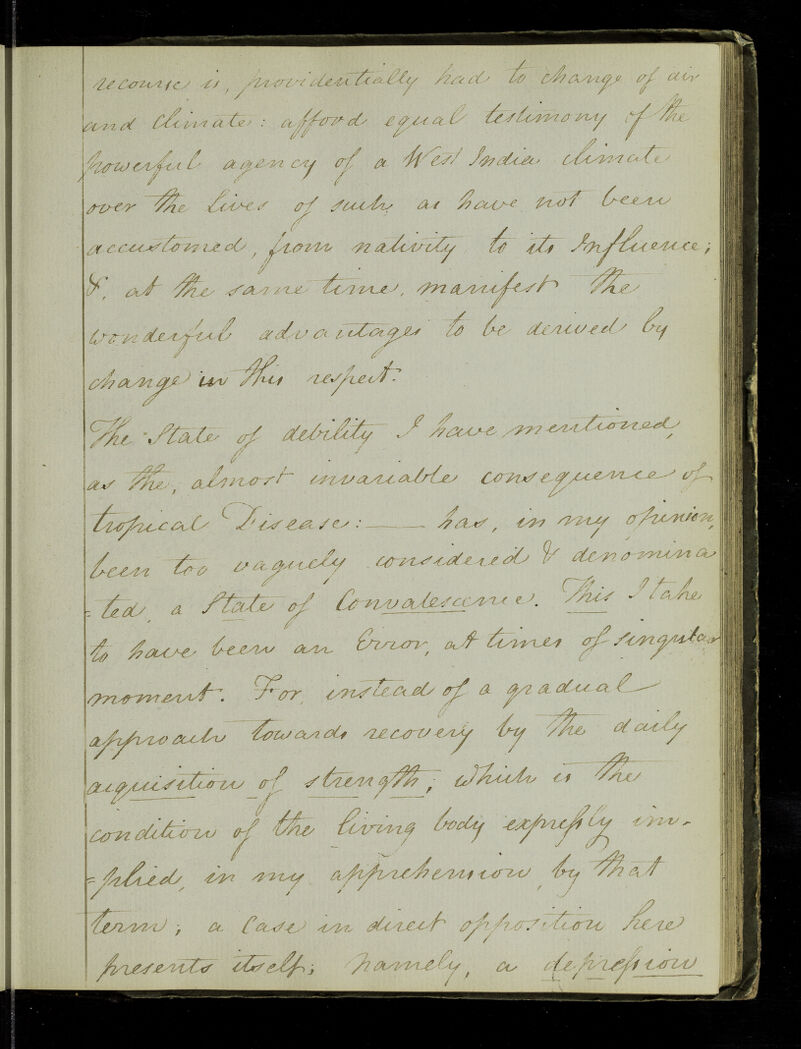 recourse is, providentially had to change of air
and Climate: afford equal testimony of the
powerful agency of a West India climate
over the Lives of such as have not been
accustomed, from nativity to its Influence;
&, at the same time, manifest the
wonderful advantages to be derived by
change in this respect.
The State of debility I have mentioned,
as the, almost invariable consequence of
tropical Disease: —— has, in my opinion,
been too vaguely considered & denomina
=ted, a State of Convalescence. This I take
to have been an Error, at times of singular
moment. For, instead of a gradual
approach towards recovery by the daily
acquisition of strength; which is the
condition of the living body expreſsly im-
=plied, in my apprehension, by that
term; a Case in direct opposition here
presents itself; namely, a depreſsion